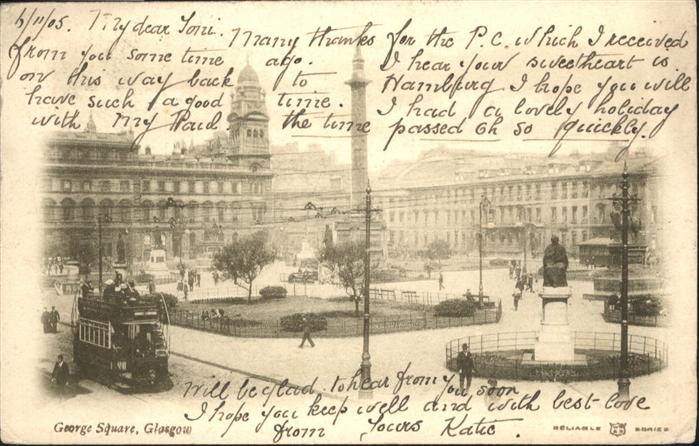 6/11/05. My dear Toni. Many thanks for the P.C. which I received
from you some time ago. I hear your sweetheart is
on this way back to Hamburg I hope you will
have such a good time. I had a lovely holiday
with my Paul. the time passed oh so quickly.
Will be glad to hear from you soon
I hope you keep well and with best love
from Yours Katie.
George Square, Glasgow
RELIABLE SERIES